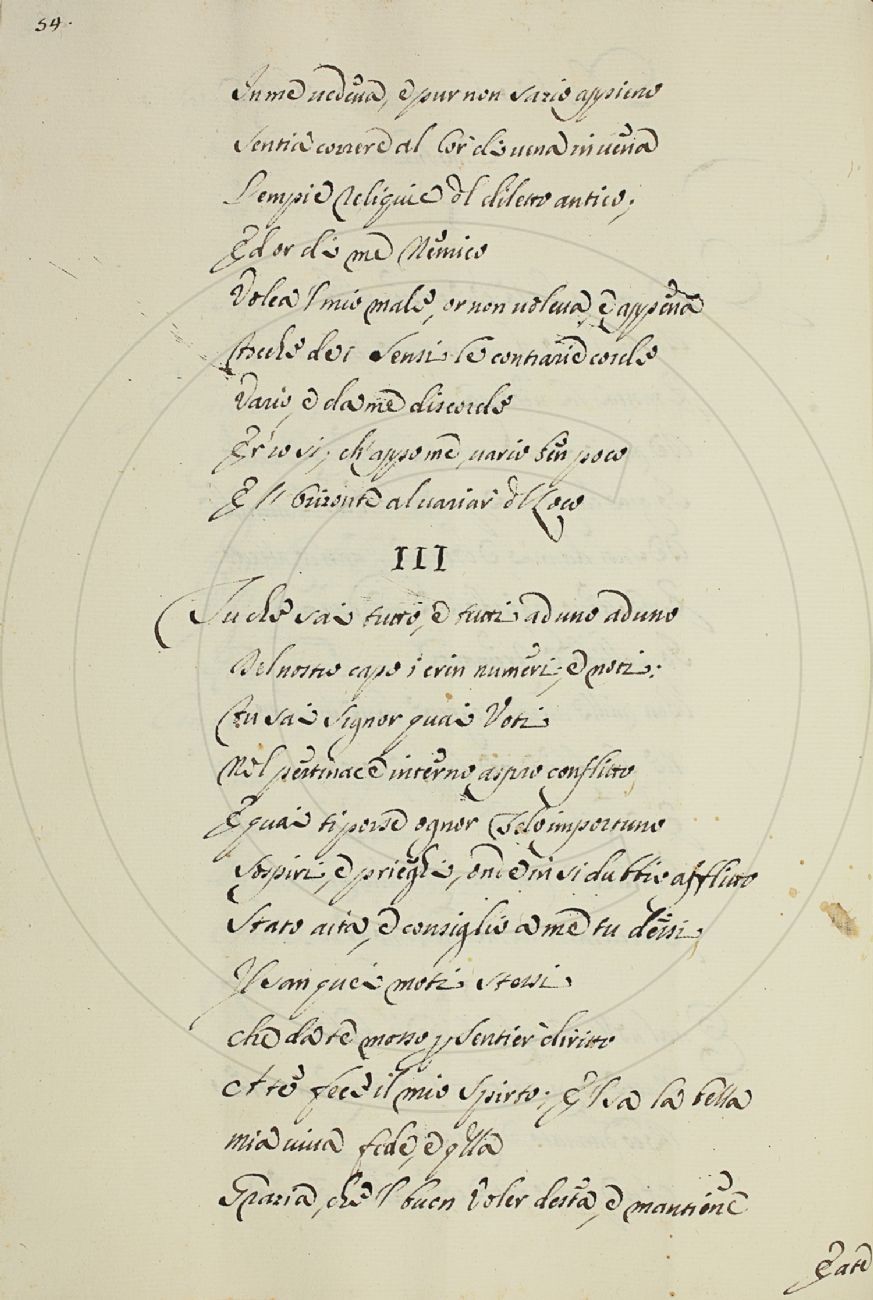 54.
In me vedeva, e pur non sazio appieno
Sentia correre al Cor di vena in vena
L'empie Reliquie dl diletto antico;
Ed or di me Nemico
Volea 'l mio male, or non voleva, e appena
che dei Sensi le contrarie corde
Vario, e da me discorde
Er' io sì; ch' appo me vario ben poco
È l' Orizonte al variar dl Loco
III
Tu che sai tutto, e tutti ad uno ad uno
Del nostro capo i crin numeri, e noti;
Tu sai Signor quai Voti
Nel pertinace interno aspro conflitto,
E quai ti porse ognor Zelo importuno
Sospiri, e prieghi, onde in sì dubbio afflitto
Stato aita, e consiglio a me tu dessi,
I moti stessi
che da te mosso p sentier diritto
A te fece il mio Spirto; E 'l sa la bella
mia viva fede, e qlla
Grazia, che 'l buon Voler desta, e mantiene
E a te